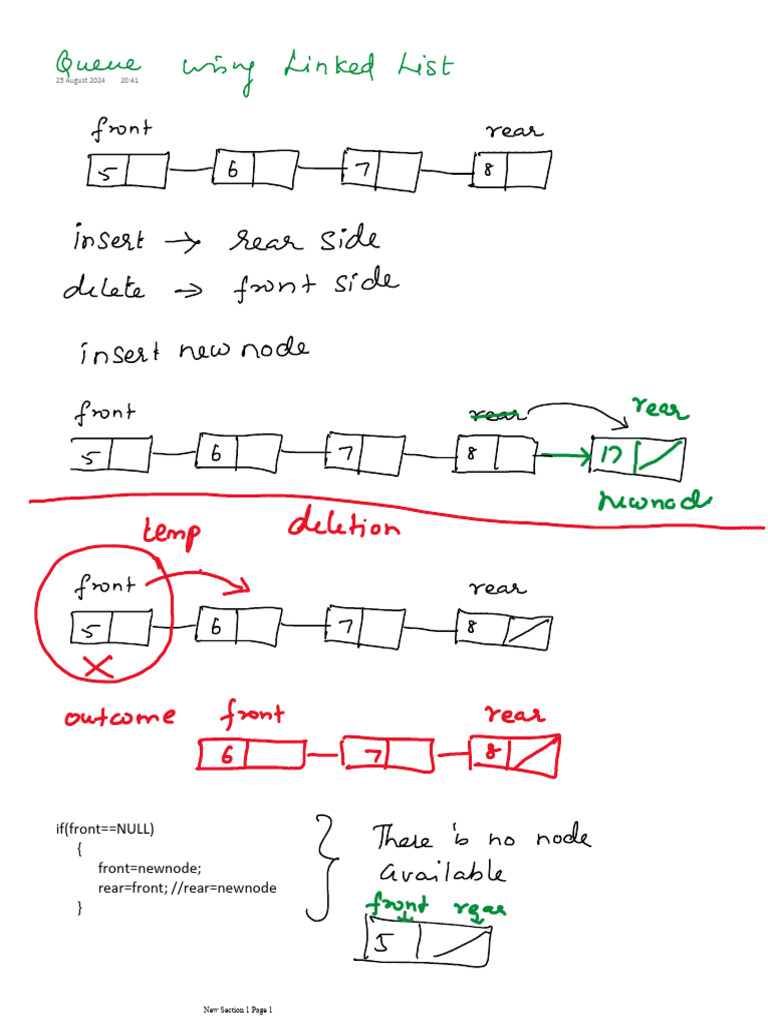 Queue using Linked List
25 August 2024 20:41
front rear
5 6 7 8
insert → rear side
delete → front side
insert new node
front rear rear
5 6 7 8 17
newnod
deletion
temp
front rear
5 6 7 8
X
outcome front rear
6 7 8
if(front==NULL)
{
front=newnode;
rear=front; //rear=newnode
}
There is no node
available
front rear
5
New Section 1 Page 1